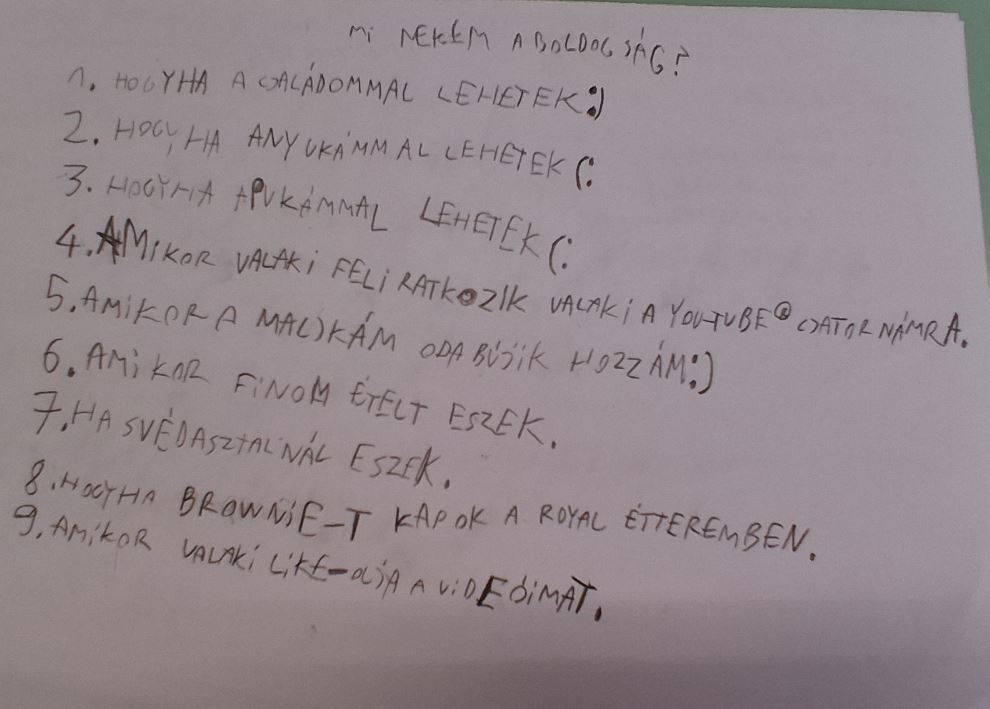 Mi NEKEM A BOLDOGSÁG?
1. HOGYHA A CSALÁDOMMAL LEHETEK:)
2. HOGYHA ANYUKÁMMAL LEHETEK (:
3. HOGYHA APUKÁMMAL LEHETEK (:
4. AMiKOR VALAKi FELiRATKOZIK VALAKi A YOU-TUBE® CSATORNÁMRA.
5. AMiKOR A MACSKÁM ODABÚJiK HOZZÁM:)
6. AMiKOR FiNOM ÉTELT ESZEK.
7. HA SVÉDASZTALNÁL ESZEK.
8. HOGYHA BROWNiE-T KAPOK A ROYAL ÉTTEREMBEN.
9. AMiKOR VALAKi LiKE-OLJA A ViDEÓiMAT.